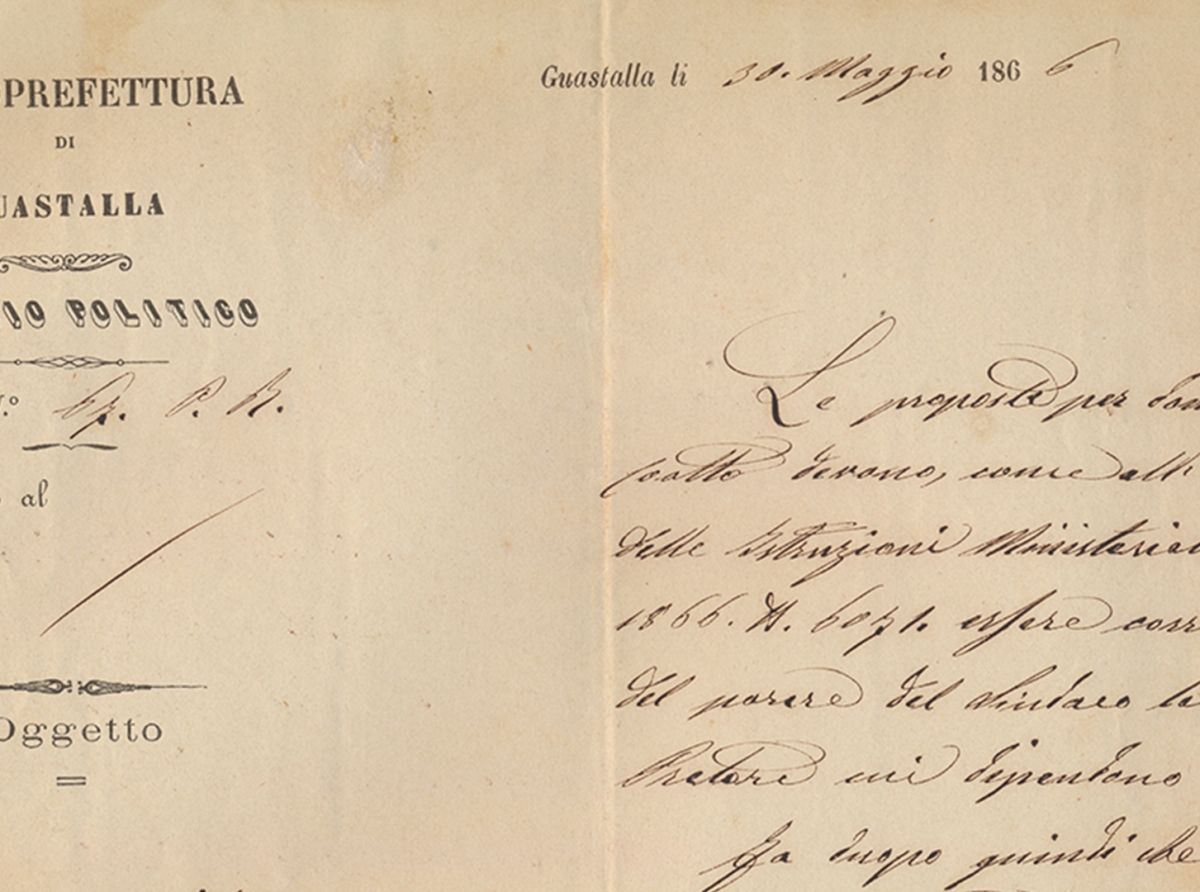 PREFETTURA
DI
UASTALLA
IO POLITICO
N.º 67. P. R.
al
Oggetto
Guastalla li 30. Maggio 1866
Le proposte per dom
coatto devono, come all'
delle Istruzioni Ministerial
1866. N. 6071. essere corr
del parere del Sindaco
Pretore cui dipendono
Fa duopo quindi che